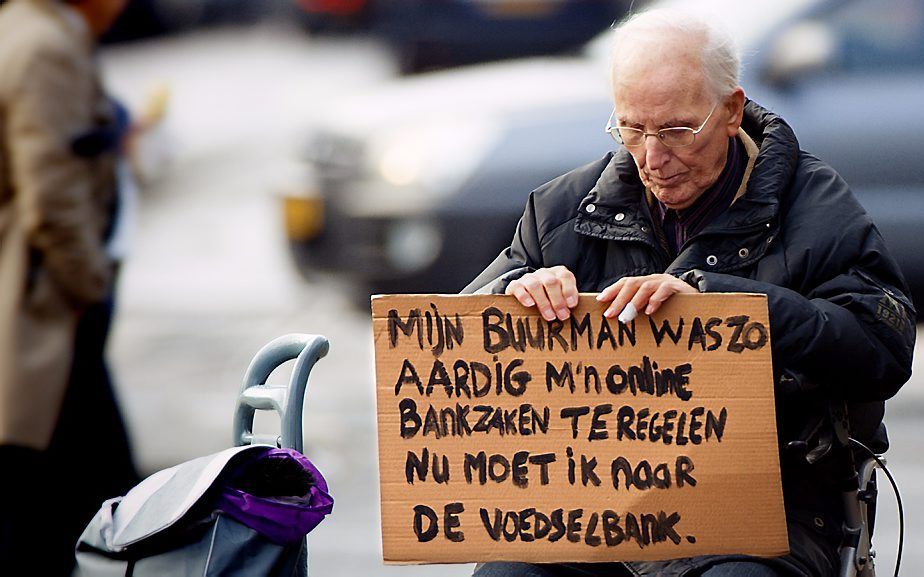 MIJN BUURMAN WAS ZO
AARDIG M'n online
BANKZAKEN TE REGELEN
NU MOET iK naar
DE VOEDSELBANK.